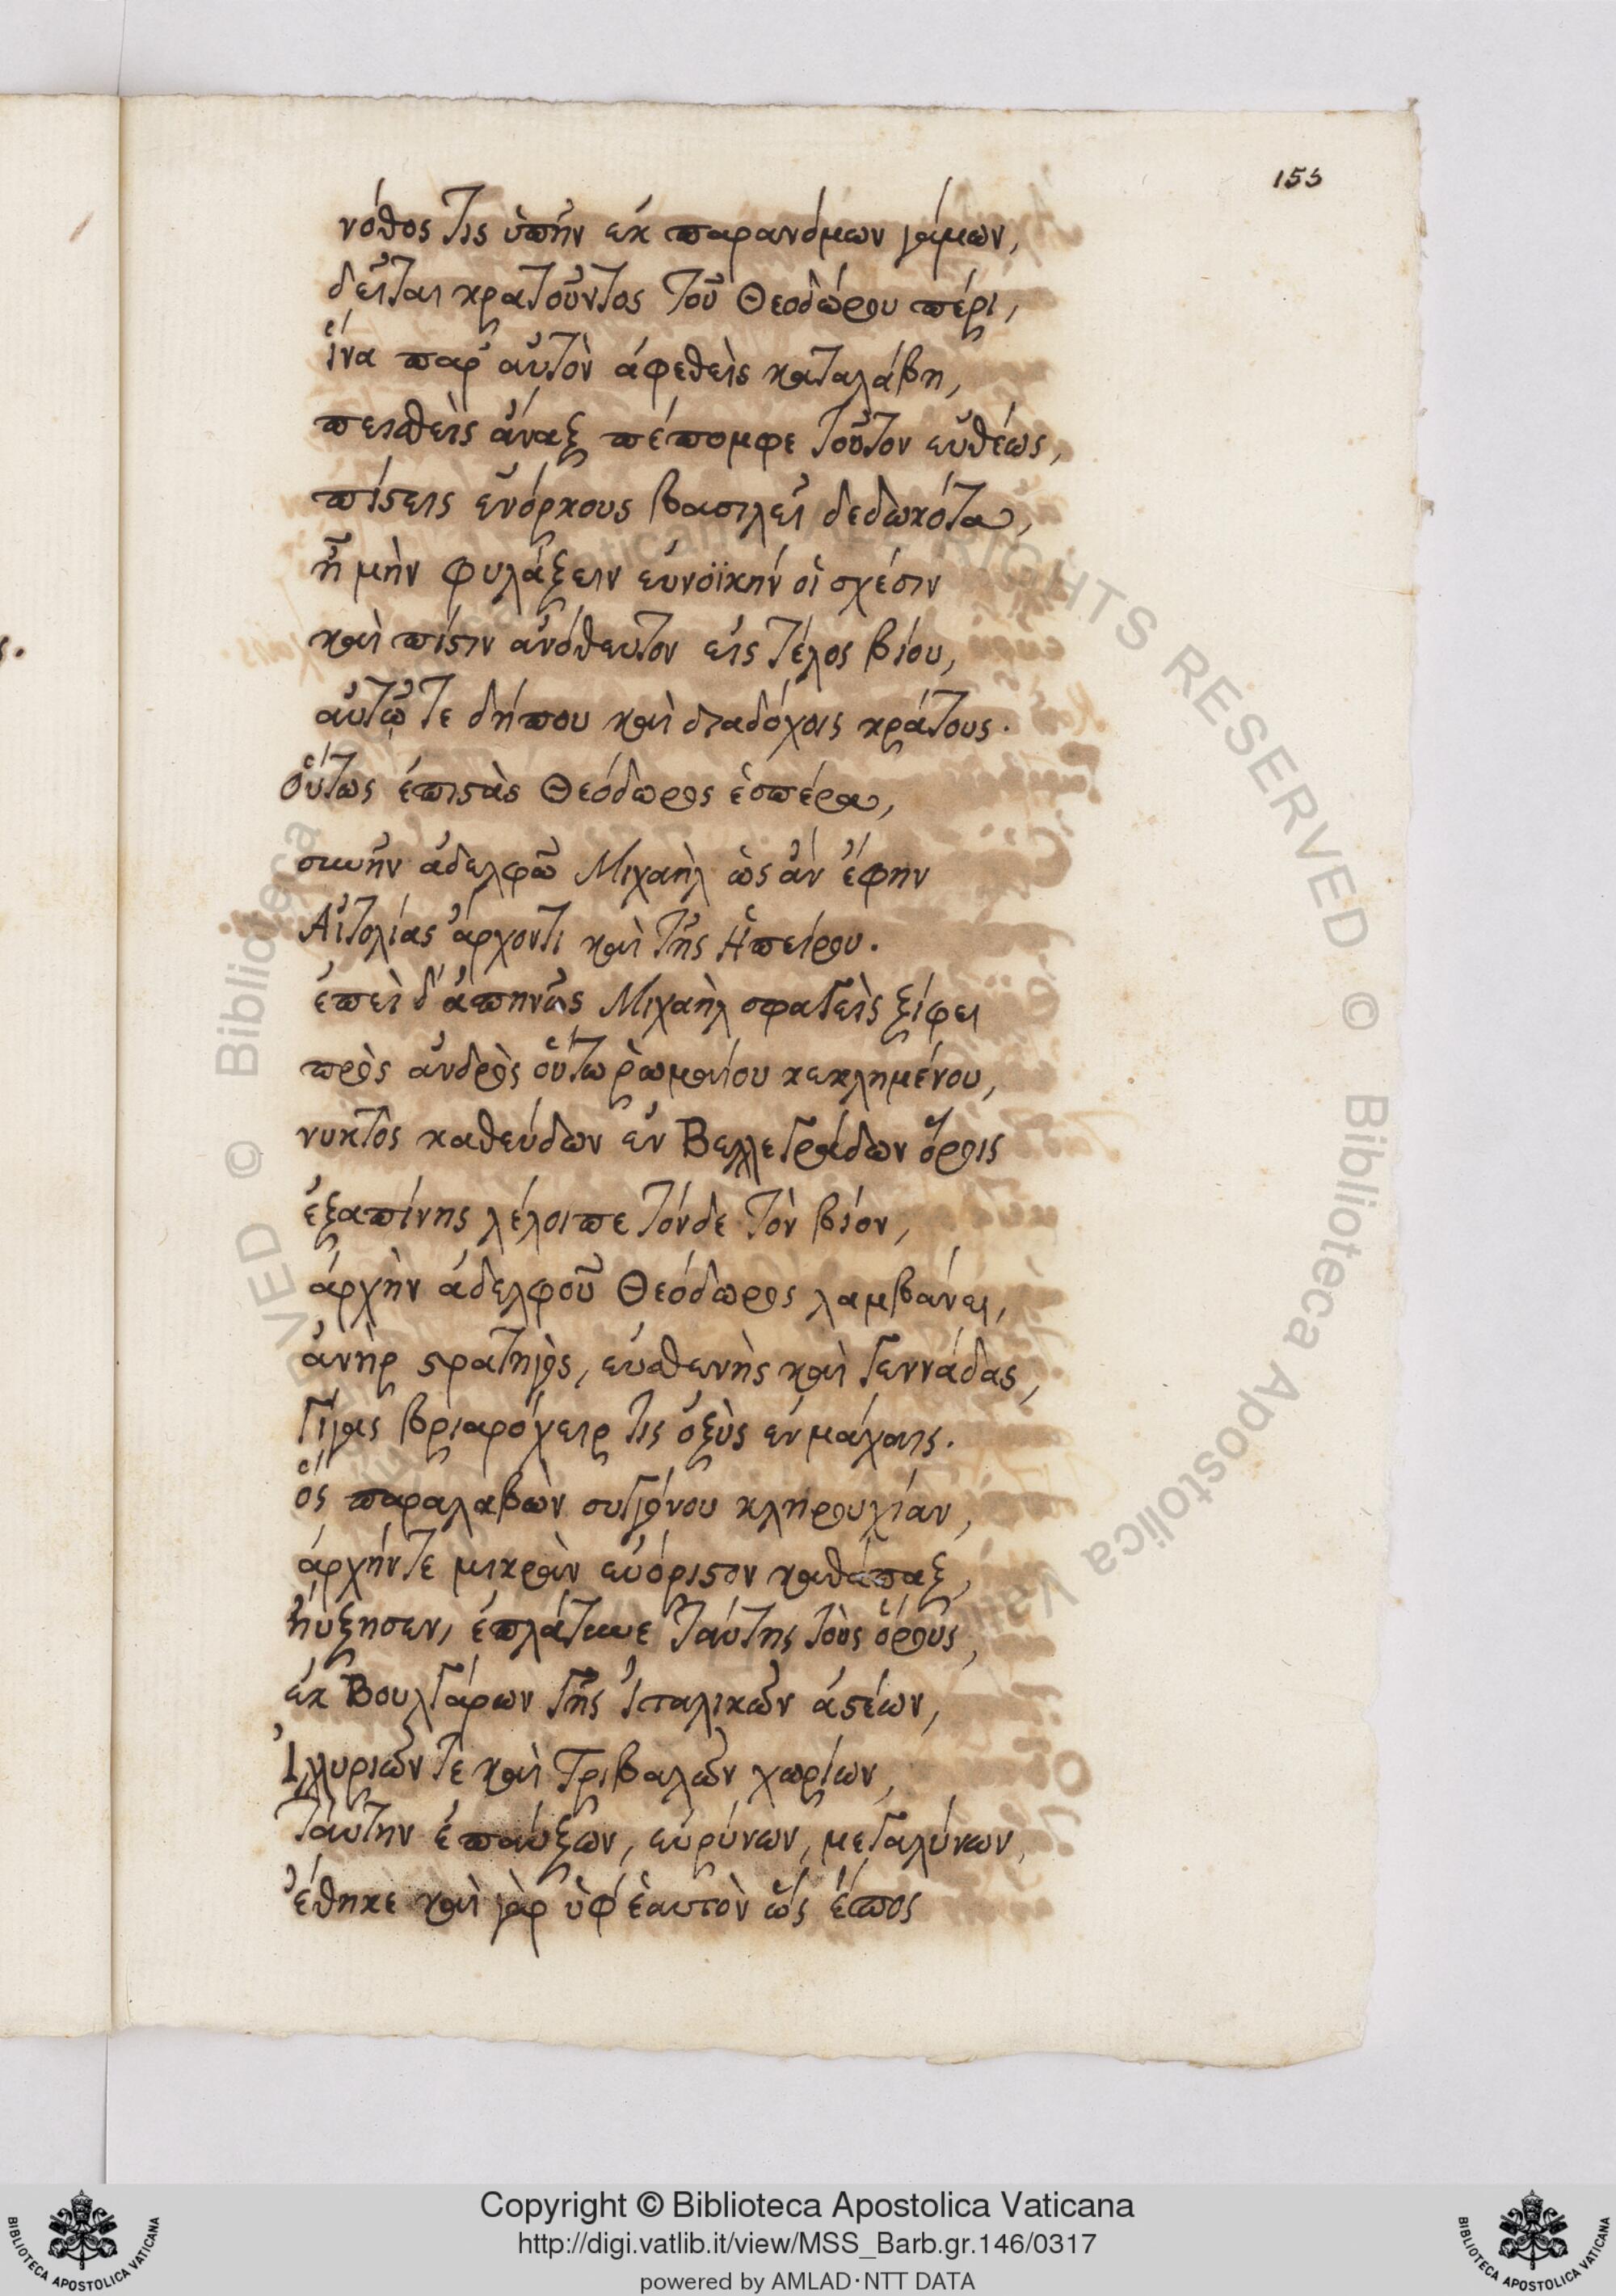 155
νόθος τις ὑπῆν ἐκ παρανόμων γάμων,
δεῖται κρατοῦντος τοῦ Θεοδώρου πέρι,
ἵνα παρ' αὐτὸν ἀφεθεὶς καταλάβη,
πεισθεὶς ἄναξ πέπομφε τοῦτον εὐθέως,
πίστεις ἐνόρκους βασιλεῖ δεδωκότα,
ἦ μὴν φυλάξειν εὐνοϊκήν οἱ σχέσιν
καὶ πίστιν ἀνόθευτον εἰς τέλος βίου,
αὐτῷ τε δήπου καὶ διαδόχοις κράτους.
Οὕτως ἐπιστὰς Θεόδωρος ἑσπέρα,
συνῆν ἀδελφῶ Μιχαὴλ ὡς ἂν ἔφην
Αἰτολίας ἄρχοντι καὶ τῆς Ἠπείρου.
ἐπεὶ δ' ἀπηνῶς Μιχαὴλ σφαγεὶς ξίφει
πρὸς ἀνδρὸς οὕτω ῥωμαίου κεκλημένου,
νυκτὸς καθεύδων ἐν Βελλεγράδων ὅροις
ἐξαπίνης λέλοιπε τόνδε τὸν βίον,
ἀρχὴν ἀδελφοῦ Θεόδωρος λαμβάνει,
ἀνὴρ στρατηγὸς, εὐσθενὴς καὶ γεννάδας,
γίγας βριαρόχειρ τις ὀξὺς ἐν μάχαις.
ὃς παραλαβὼν συγγόνου κληρουχίαν,
ἀρχήν τε μικρὰν εὐόριστον καθάπαξ,
ηὔξησεν, ἐπλάτυνε ταύτης τοὺς ὅρους,
ἐκ Βουλγάρων γῆς Ἰταλικῶν ἀστέων,
Ἰλλυριῶν τε καὶ Τριβαλῶν χωρίων,
ταύτην ἐπαύξων, εὐρύνων, μεγαλύνων,
ἔθηκε καὶ γὰρ ὑφ' ἑαυτὸν ὡς ἔπος
Copyright © Biblioteca Apostolica Vaticana
http://digi.vatlib.it/view/MSS_Barb.gr.146/0317
powered by AMLAD·NTT DATA
BIBLIOTECA APOSTOLICA VATICANA
BIBLIOTECA APOSTOLICA VATICANA